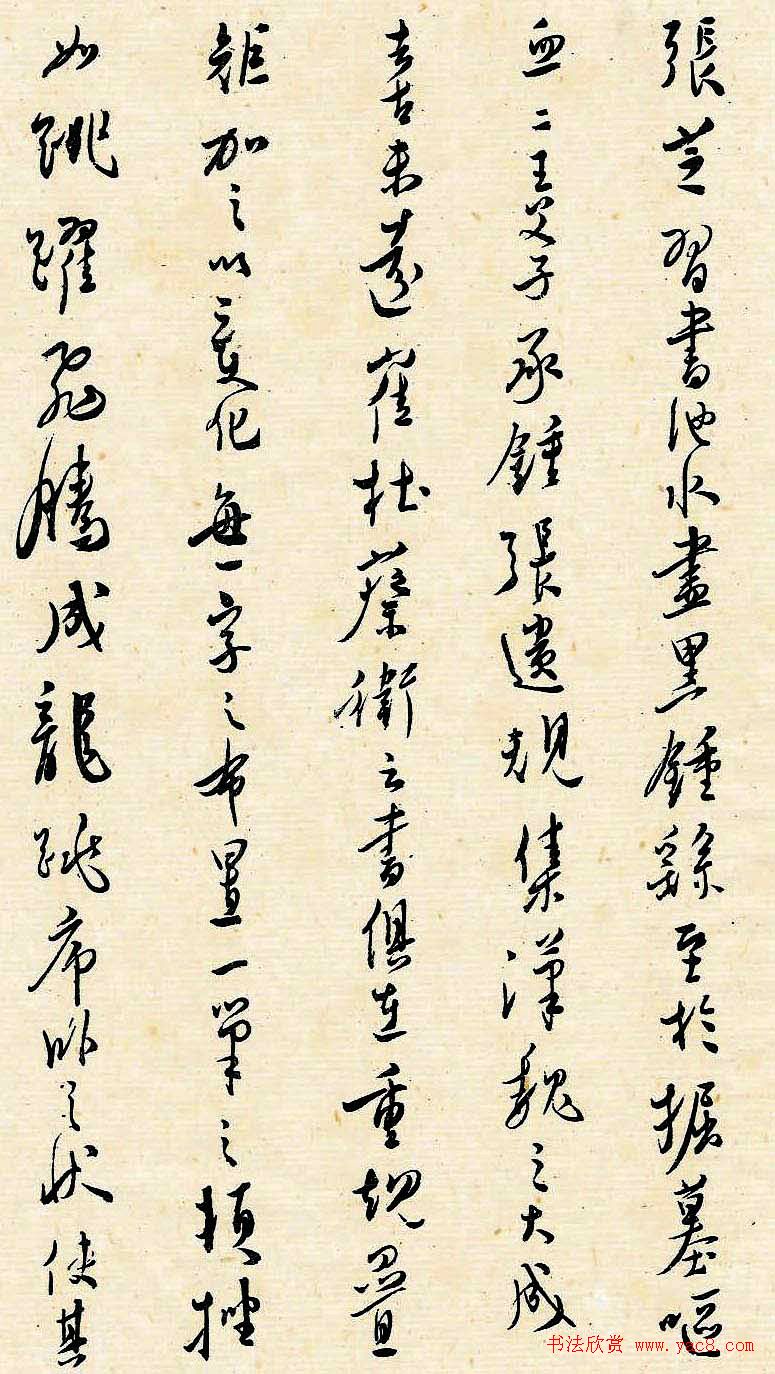 張芝習書池水盡黑鍾繇至於掘墓嘔
血二王父子承鍾張遺規集漢魏之大成
去古未遠崔杜蔡衛之書俱在重規疊
矩加之以變化每一字之布置一筆之頓挫
如跳躍飛騰成龍跳虎臥之狀使其
书法欣赏 www.yac8.com